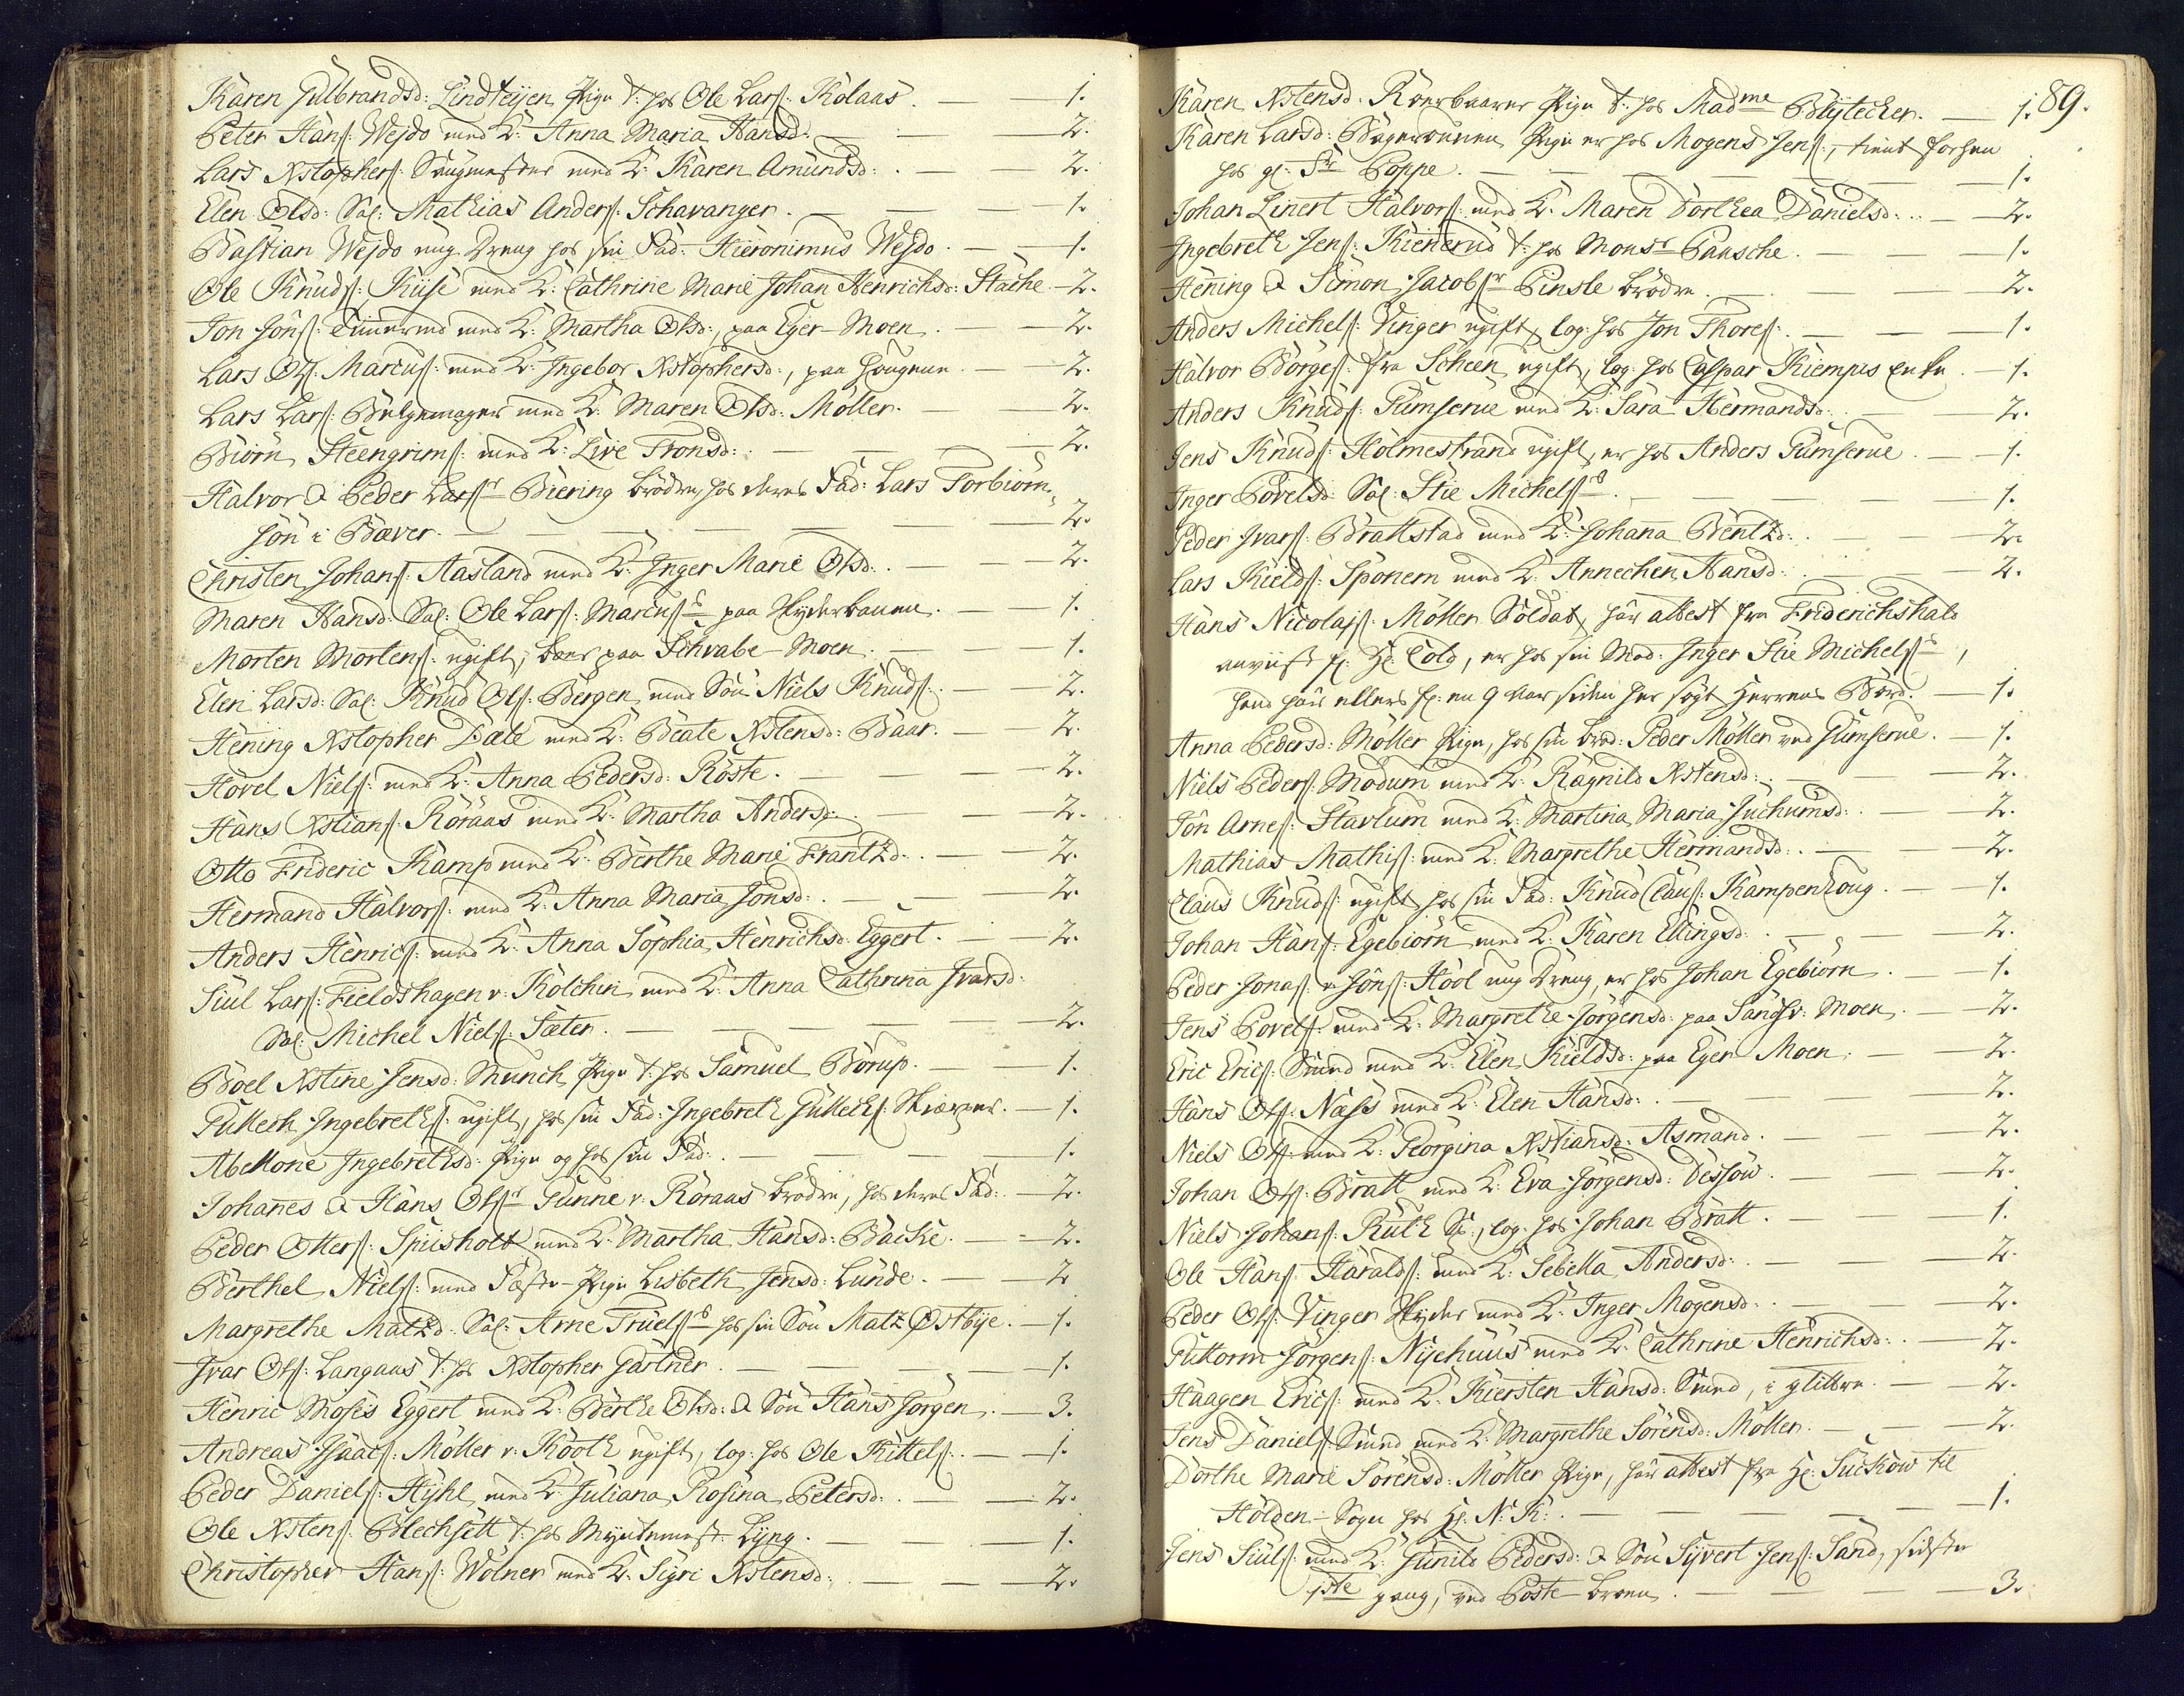 Karen Gulbrandsd: Lindteijen Pige t: hos Ole Lars: Kolaas. — 1.
Peter Hans: Wejdo med K: Anna Maria Hansd: — 2.
Lars Xstophers: Saugmester med K: Karen Amundsd: — 2.
Elen Olsd: Sal: Mathias Anders: Schavanger. — 1.
Bastian Wejdo ung Dreng hos sin Fad: Hieronimus Wejdo. — 1.
Ole Knuds: Kiise med K: Cathrine Marie Johan Henrichsd: Stache — 2.
Jon Jöns: Timermd med K: Martha Olsd:, paa Eger-Moen. — 2.
Lars Ols: Marcus: med K: Ingebor Xstophersd:, paa Hougene. — 2.
Lars Lars: Bælgemager med K: Maren Olsd: Möller. — 2.
Biörn Steengrims: med K: Live Tronsd: — 2.
Halvor & Peder Larsr Biering brödre, hos deres Fad: Lars Torbiörn-
sön i Bæver. — 2.
Christen Johans: Aasland med K: Inger Marie Olsd: — 2.
Maren Hansd: Sal: Ole Lars: Marcuss paa Skyderbanen. — 1.
Morten Mortens: ugift, boer paa Schvabe-Moen. — 1.
Elen Larsd: Sal: Knud Ols: Bergen med Sön Niels Knuds: — 2.
Hening Xstopher Dæle med K: Beate Xstensd: Baar. — 2.
Hovel Niels: med K: Anna Pedersd: Röste. — 2.
Hans Xstians: Röraas med K: Martha Andersd: — 2.
Otto Frideric Kamp med K: Berthe Marie Frantzd: — 2.
Hermand Halvors: med K: Anna Maria Jonsd: — 2.
Anders Henrics: med K: Anna Sophia Henrichsd: Eggert. — 2.
Siul Lars: Fieldshagen v: Kolchin med K: Anna Cathrina Ivarsd:
Sal: Michel Niels: Sæter. — 2.
Boel Xstine Jensd: Munch Pige t: hos Samuel Börup. — 1.
Gullech Ingebreths: ugift, hos sin Fad: Ingebreth Gullechs: Skræper. — 1.
Abellone Ingebrethsd: Pige og hos sin Fad: — 1.
Johanes & Hans Olsr Gunne v: Röraas brödre, hos deres Fad: — 2.
Peder Otters: Spiisholt med K: Martha Hansd: Backe. — 2.
Berthel Niels: med Fæste-Pige Lisbeth Jensd: Lunde. — 2
Margrethe Matzd: Sal: Arne Truelss hos sin Sön Matz Östbÿe. — 1.
Ivar Ols: Langaas t: hos Xstopher Gartner. — 1.
Henric Moses Eggert med K: Berthe Olsd: & Sön Hans Jörgen. — 3.
Andreas Isaacs: Möller v: Kooth ugift, log: hos Ole Kittels: — 1.
Peder Daniels: Hÿhl med K: Juliana Rosina Petersd: — 2.
Ole Xstens: Blechsett t: hos Myntemest: Lÿng. — 1.
Christopher Hans: Wolner med K: Sigri Xstensd: — 2.
89.
Karen Xstensd: Röerbaarer Pige t: hos Madme Blÿtecher. — 1.
Karen Larsd: Pige er hos Mogens Jens:, tient forhen
hos gl: Sr Poppe. — 1.
Johan Linert Halvors: med K: Maren Dorthea Danielsd: — 2.
Ingebreth Jens: Kiennerud t: hos Monsr Paasche. — 1.
Hening & Simon Jacobsr Pinsle brödre. — 2.
Anders Michels: Vinger ugift, log: hos Jon Thores: — 1.
Halvor Börges: fra Scheen ugift, log: hos Caspar Kiempes Enke. — 1.
Anders Knuds: Gumserue med K: Sara Hermandsd: — 2.
Jens Knuds: Holmestrand ugift, er hos Anders Gumserue. — 1.
Inger Povelsd: Sal: Stie Michelss. — 1.
Peder Ivars: Brattstad med K: Johana Bentzd: — 2.
Lars Kields: Sponem med K: Annechen Hansd: — 2.
Hans Nicolajs: Möller Soldat, har attest fra Friderichshald
anviist f: Hr Cold, er hos sin Mod: Inger Stie Michelss,
hand har ellers f: en 9 Aar siden her sögt Herrens Bord. — 1.
Anna Pedersd: Möller Pige, hos sin brod: Peder Möller ved Gumserue. — 1.
Niels Peders: Modum med K: Ragnild Xstensd: — 2.
Jon Arnes: Stavlum med K: Martina Maria Juchumsd: — 2.
Mathias Mathis: med K: Margrethe Hermandsd: — 2.
Claus Knuds: ugift, hos sin Fad: Knud Claus: Kampenhoug. — 1.
Johan Hans: Egebiörn med K: Karen Ellingsd: — 2.
Peder Jonas: v: Jöns: Hool ung Dreng, er hos Johan Egebiörn. — 1.
Jens Povels: med K: Margrethe Jörgensd: paa Sandsv: Moen. — 2.
Eric Erics: Smed med K: Elen Kieldsd: paa Eger Moen. — 2.
Hans Ols: Næss med K: Elen Hansd: — 2.
Niels Ols: med K: Georgina Xstiansd: Asmand. — 2.
Johan Ols: Bratt med K: Eva Jörgensd: Dessow. — 2.
Niels Johans: Ruth S:, log: hos Johan Bratt. — 1.
Ole Hans: Haralds: med K: Sebella Andersd: — 2.
Peder Ols: Vinger Skyder med K: Inger Mogensd: — 2.
Guttorm Jörgens: Nÿehuus med K: Cathrine Henrichsd: — 2.
Haagen Erics: med K: Kiersten Hansd: Smed, i glittre — 2.
Jens Daniels: Smed med K: Margrethe Sörensd: Möller. — 2.
Dorthe Marie Sörensd: Möller Pige, har attest fra Hr: Suckow til
Holden-Sogn hos Hr: N: K: — 1.
Jens Siuls: med K: Gunild Pedersd: & Sön Sÿvert Jens: Sand, sidste
1ste gang, ved Poste-broen. — 3.